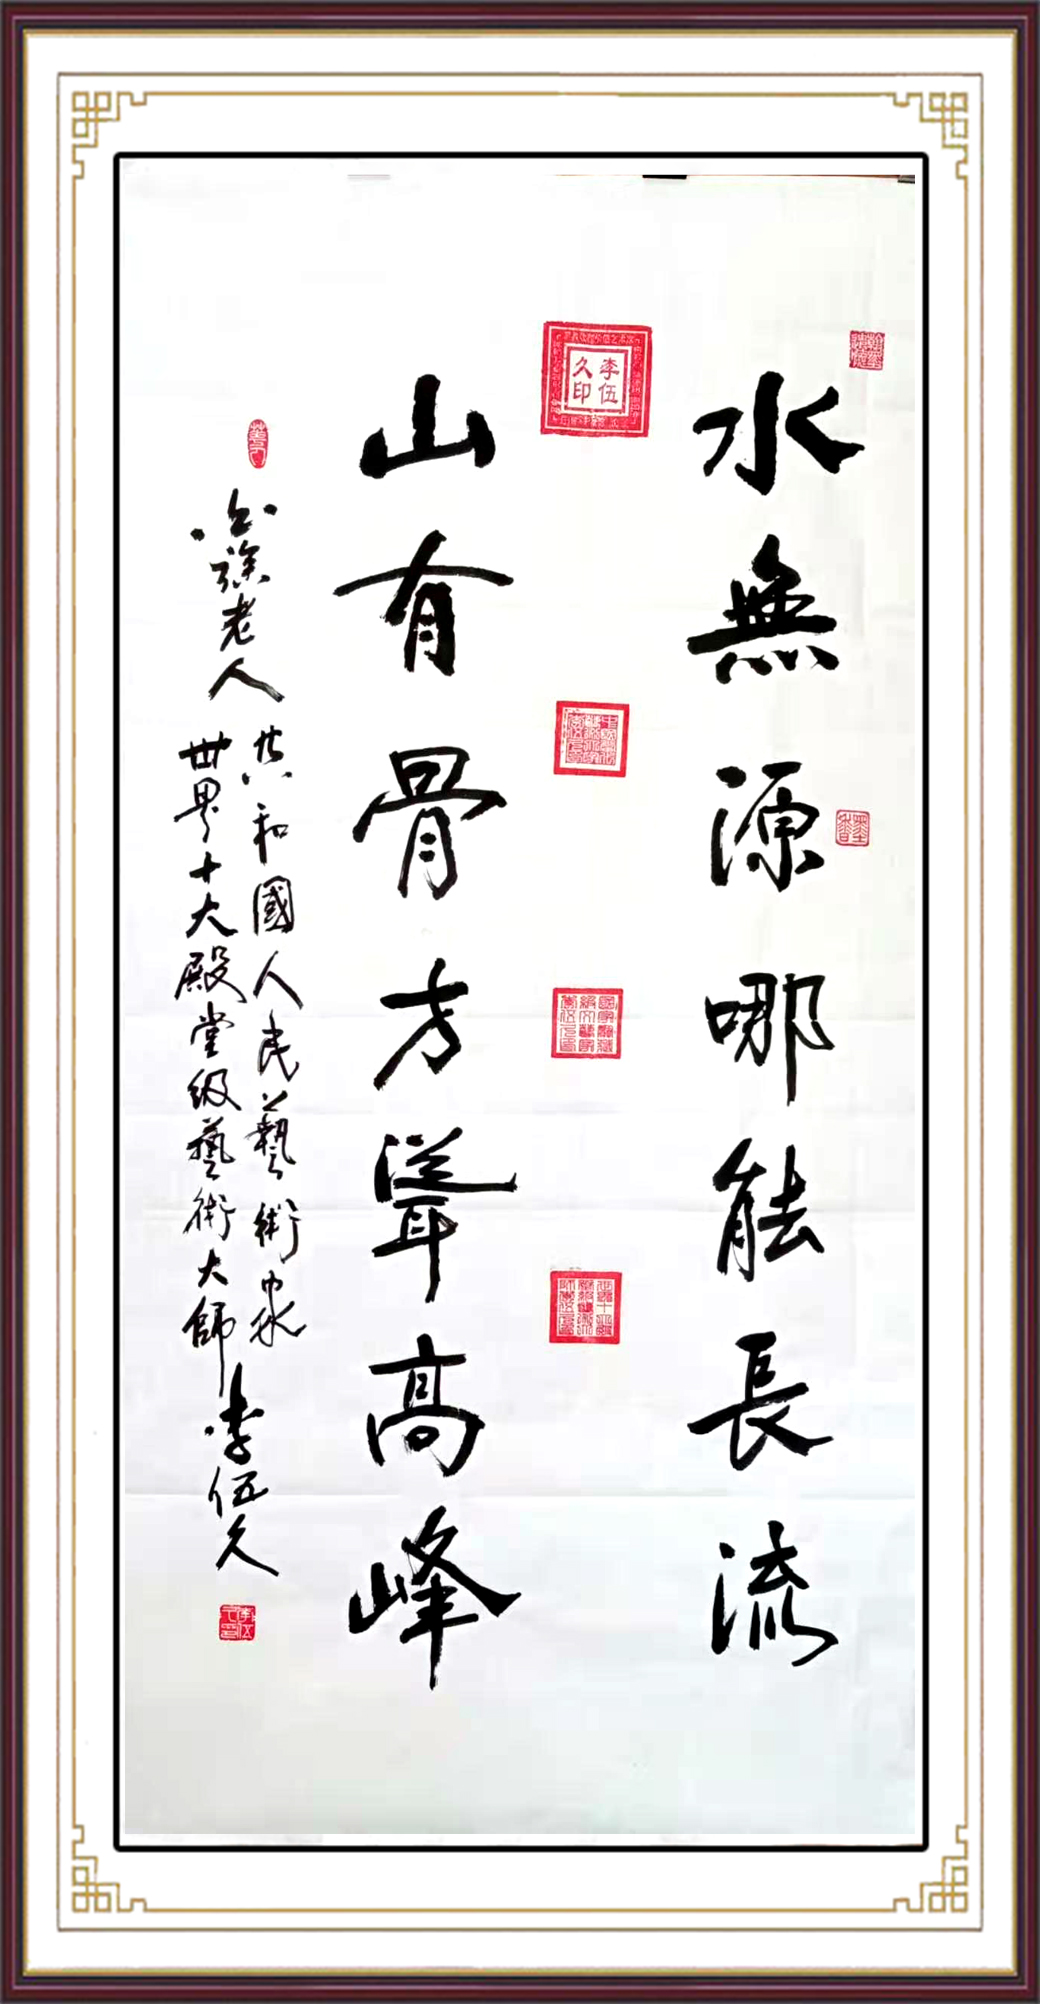 水無源哪能長流
山有骨方聳高峰
老人
共和國人民藝術家
世界十大殿堂級藝術大師
李伍久
李伍
久印